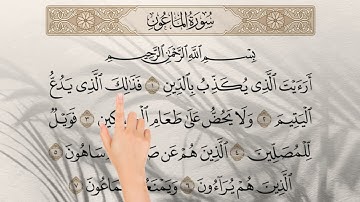 سُورَةُ المَاعُونِ
بِسْمِ اللَّهِ الرَّحْمَٰنِ الرَّحِيمِ
أَرَءَيْتَ الَّذِي يُكَذِّبُ بِالدِّينِ ١ فَذَٰلِكَ الَّذِي يَدُعُّ
الْيَتِيمَ ٢ وَلَا يَحُضُّ عَلَىٰ طَعَامِ ٣ فَوَيْلٌ
لِلْمُصَلِّينَ ٤ الَّذِينَ هُمْ عَنْ سَاهُونَ ٥
الَّذِينَ هُمْ يُرَآءُونَ ٦ ٧